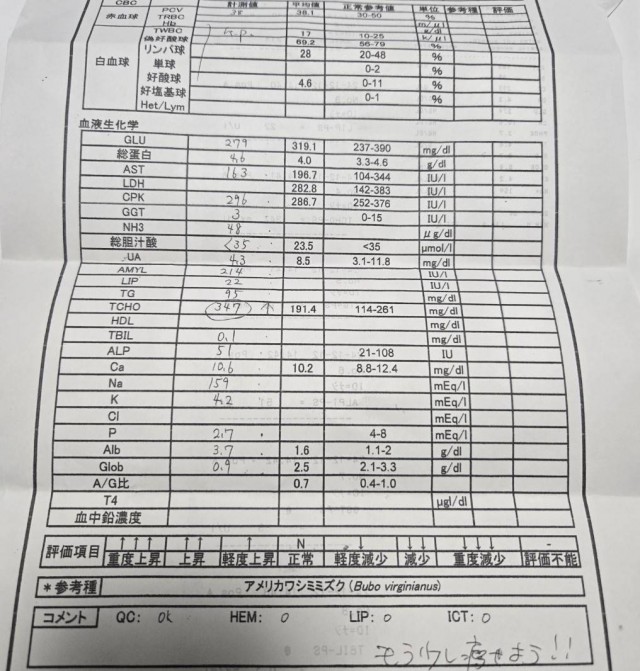 CBC 計測値 平均値 正常参考値 単位 参考種 評価
赤血球 PCV 38.1 30-50 %
TRBC m/μl
Hb g/dl
白血球 TWBC n.p. 17 10-25 k/μl
偽好酸球 69.2 56-79 %
リンパ球 28 20-48 %
単球 0-2 %
好酸球 4.6 0-11 %
好塩基球 0-1 %
Het/Lym
血液生化学
GLU 279 319.1 237-390 mg/dl
総蛋白 4.6 4.0 3.3-4.6 g/dl
AST 163 196.7 104-344 IU/l
LDH 282.8 142-383 IU/l
CPK 296 286.7 252-376 IU/l
GGT 3 0-15 IU/l
NH3 48 μg/dl
総胆汁酸 <35 23.5 <35 μmol/l
UA 4.3 8.5 3.1-11.8 mg/dl
AMYL 214 IU/l
LIP 22 IU/l
TG 95 mg/dl
TCHO 347 ↑ 191.4 114-261 mg/dl
HDL mg/dl
TBIL 0.1 mg/dl
ALP 51 21-108 IU
Ca 10.6 10.2 8.8-12.4 mg/dl
Na 159 mEq/l
K 4.2 mEq/l
Cl mEq/l
P 2.7 4-8 mEq/l
Alb 3.7 1.6 1.1-2 g/dl
Glob 0.9 2.5 2.1-3.3 g/dl
A/G比 0.7 0.4-1.0
T4 μgl/dl
血中鉛濃度
評価項目 ↑↑↑ ↑↑ ↑ N ↓ ↓↓ ↓↓↓ -
重度上昇 上昇 軽度上昇 正常 軽度減少 減少 重度減少 評価不能
*参考種 アメリカワシミミズク(Bubo virginianus)
コメント QC: ok HEM: 0 LIP: 0 ICT: 0
もう少し痩せよう!!